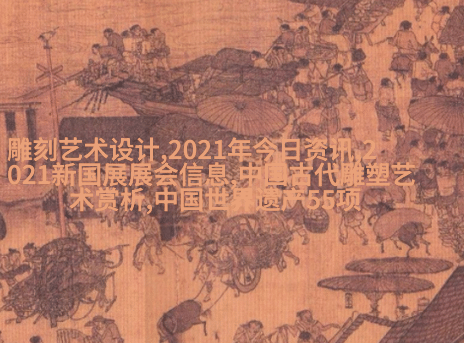 雕刻艺术设计,2021年今日资讯,2
021新国展展会信息,中国古代雕塑艺
术赏析,中国世界遗产55项